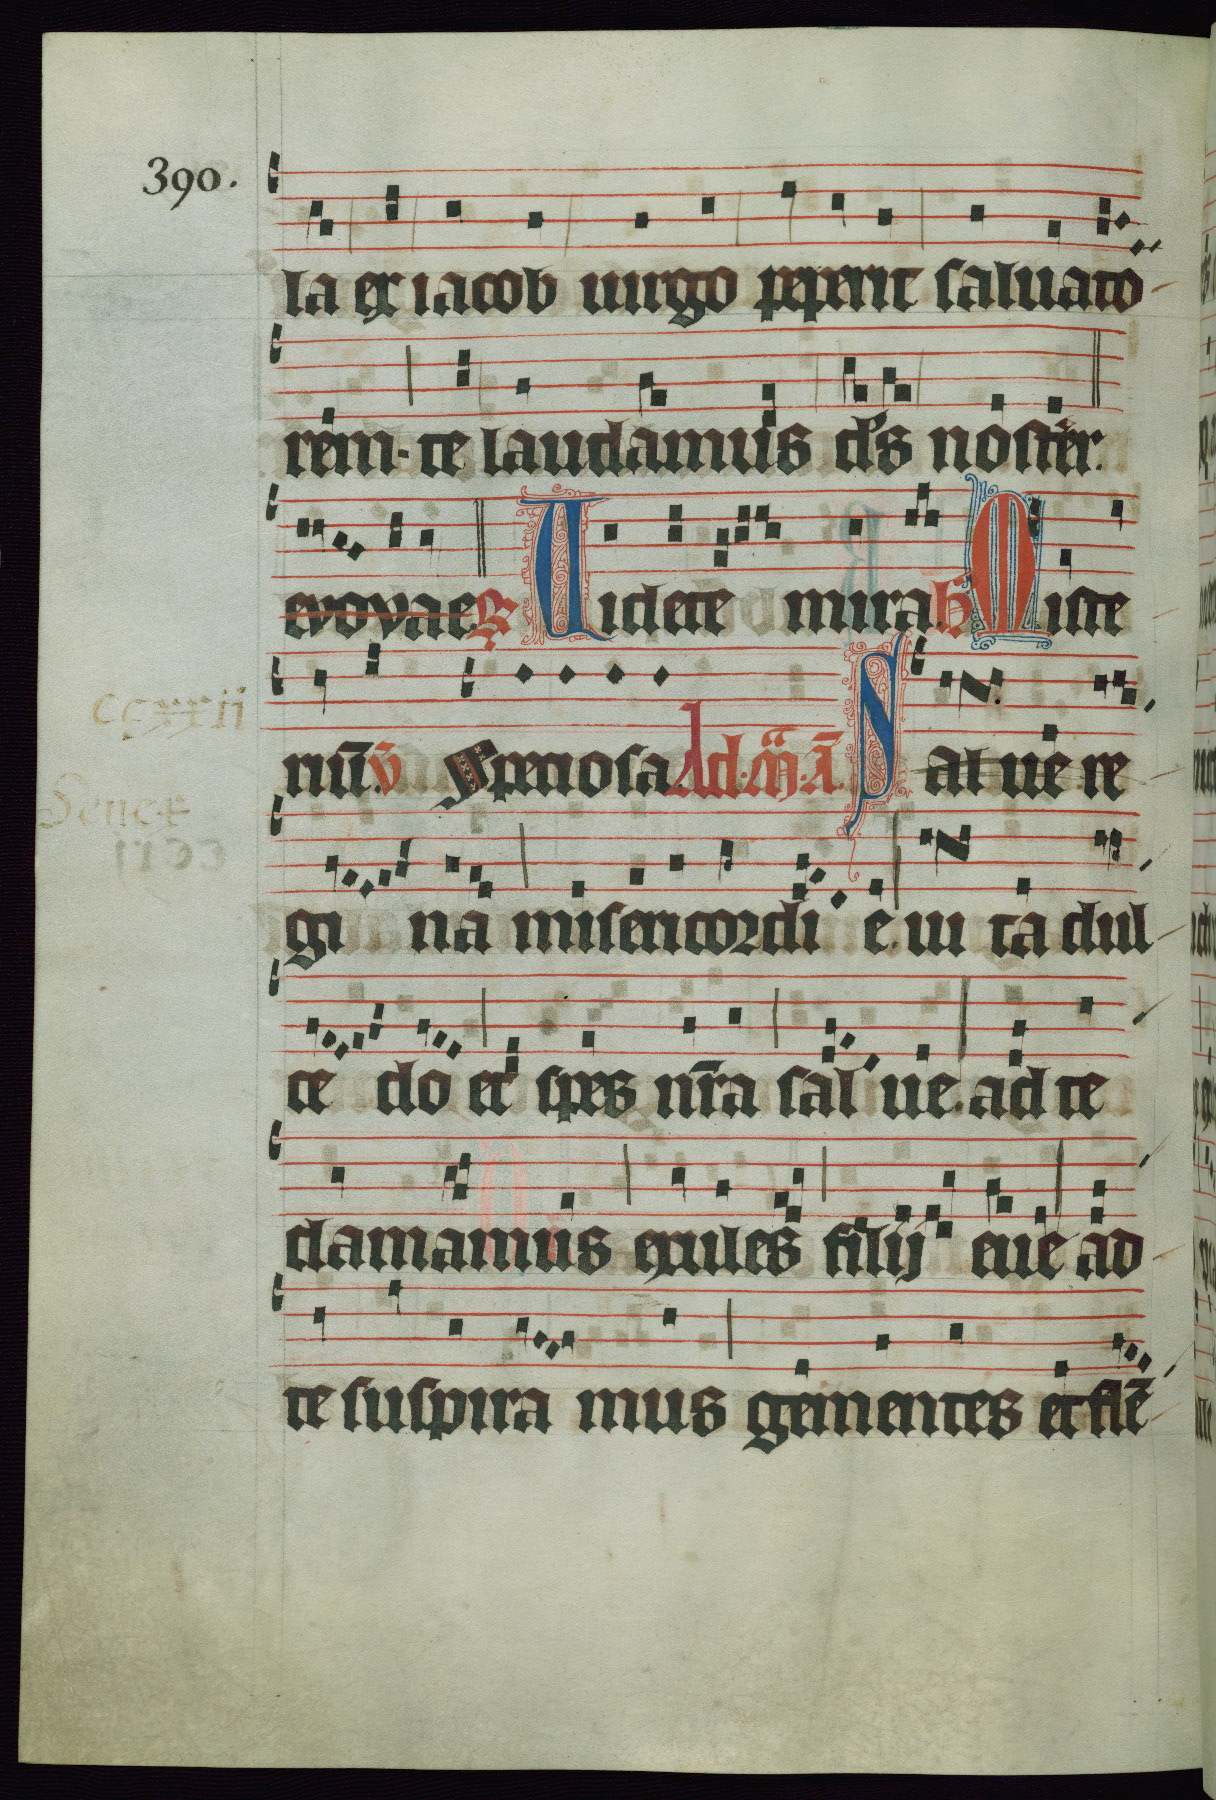 390.
la ex iacob uirgo peperit saluato-
rem. te laudamus ds noster.
evovae R Uidete mira. h Miste
rium. v Speciosa. Ad. M. A. Salue re-
gi na misericordi e. ui ta dul-
ce do et spes nra sal ue. ad te
clamamus exules filij eue ad
te suspira mus gementes et flē-
ccxxii